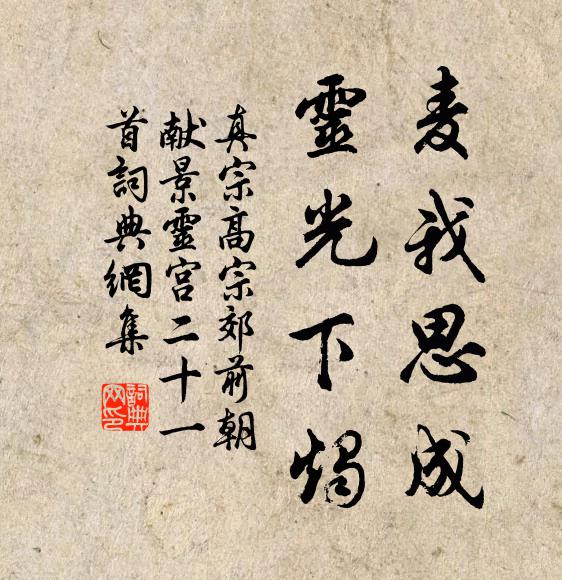 麦我思成
靈光下燭
真宗高宗郊前朝
献景靈宫二十一
首詞典網集
詞典
网印